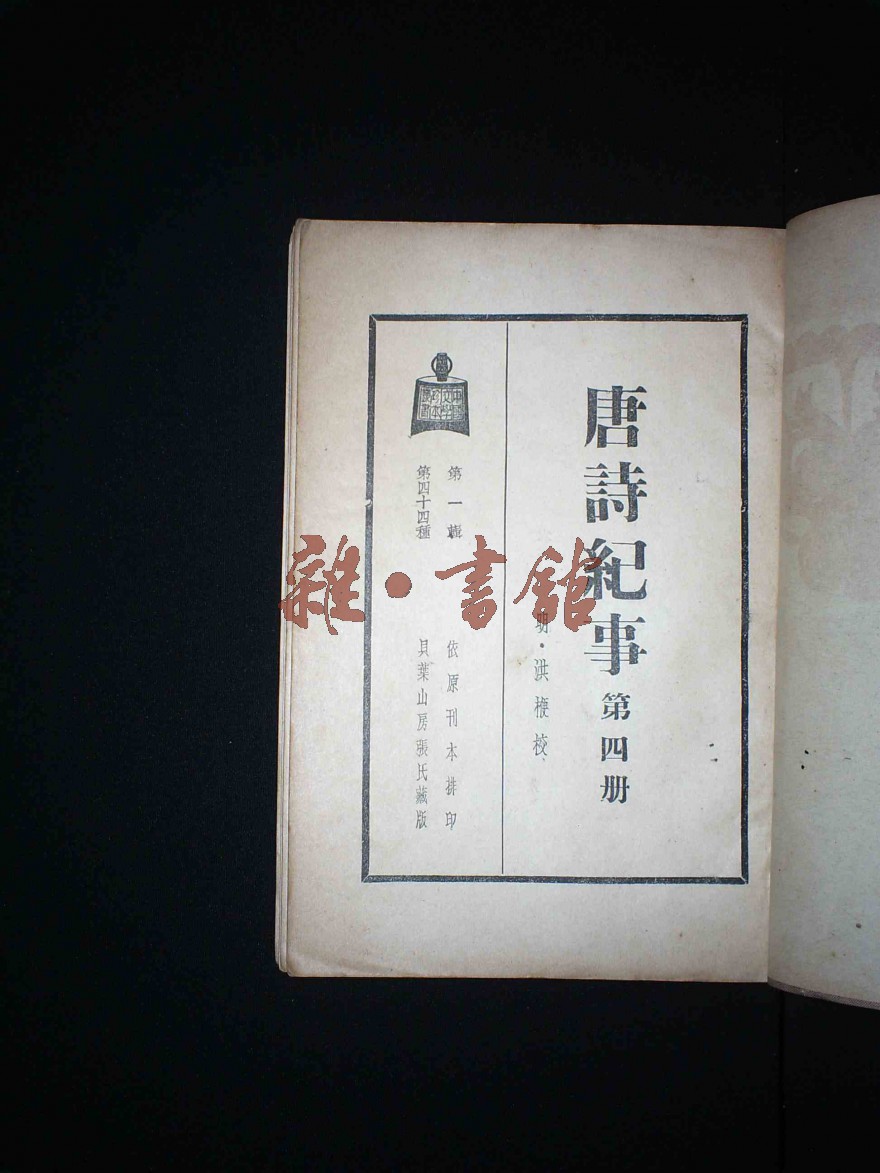 唐詩紀事 第四册
明·洪楩校
第一輯 依原刊本排印
第四十四種 貝葉山房張氏藏版
中國文學珍本叢書
雜·書館